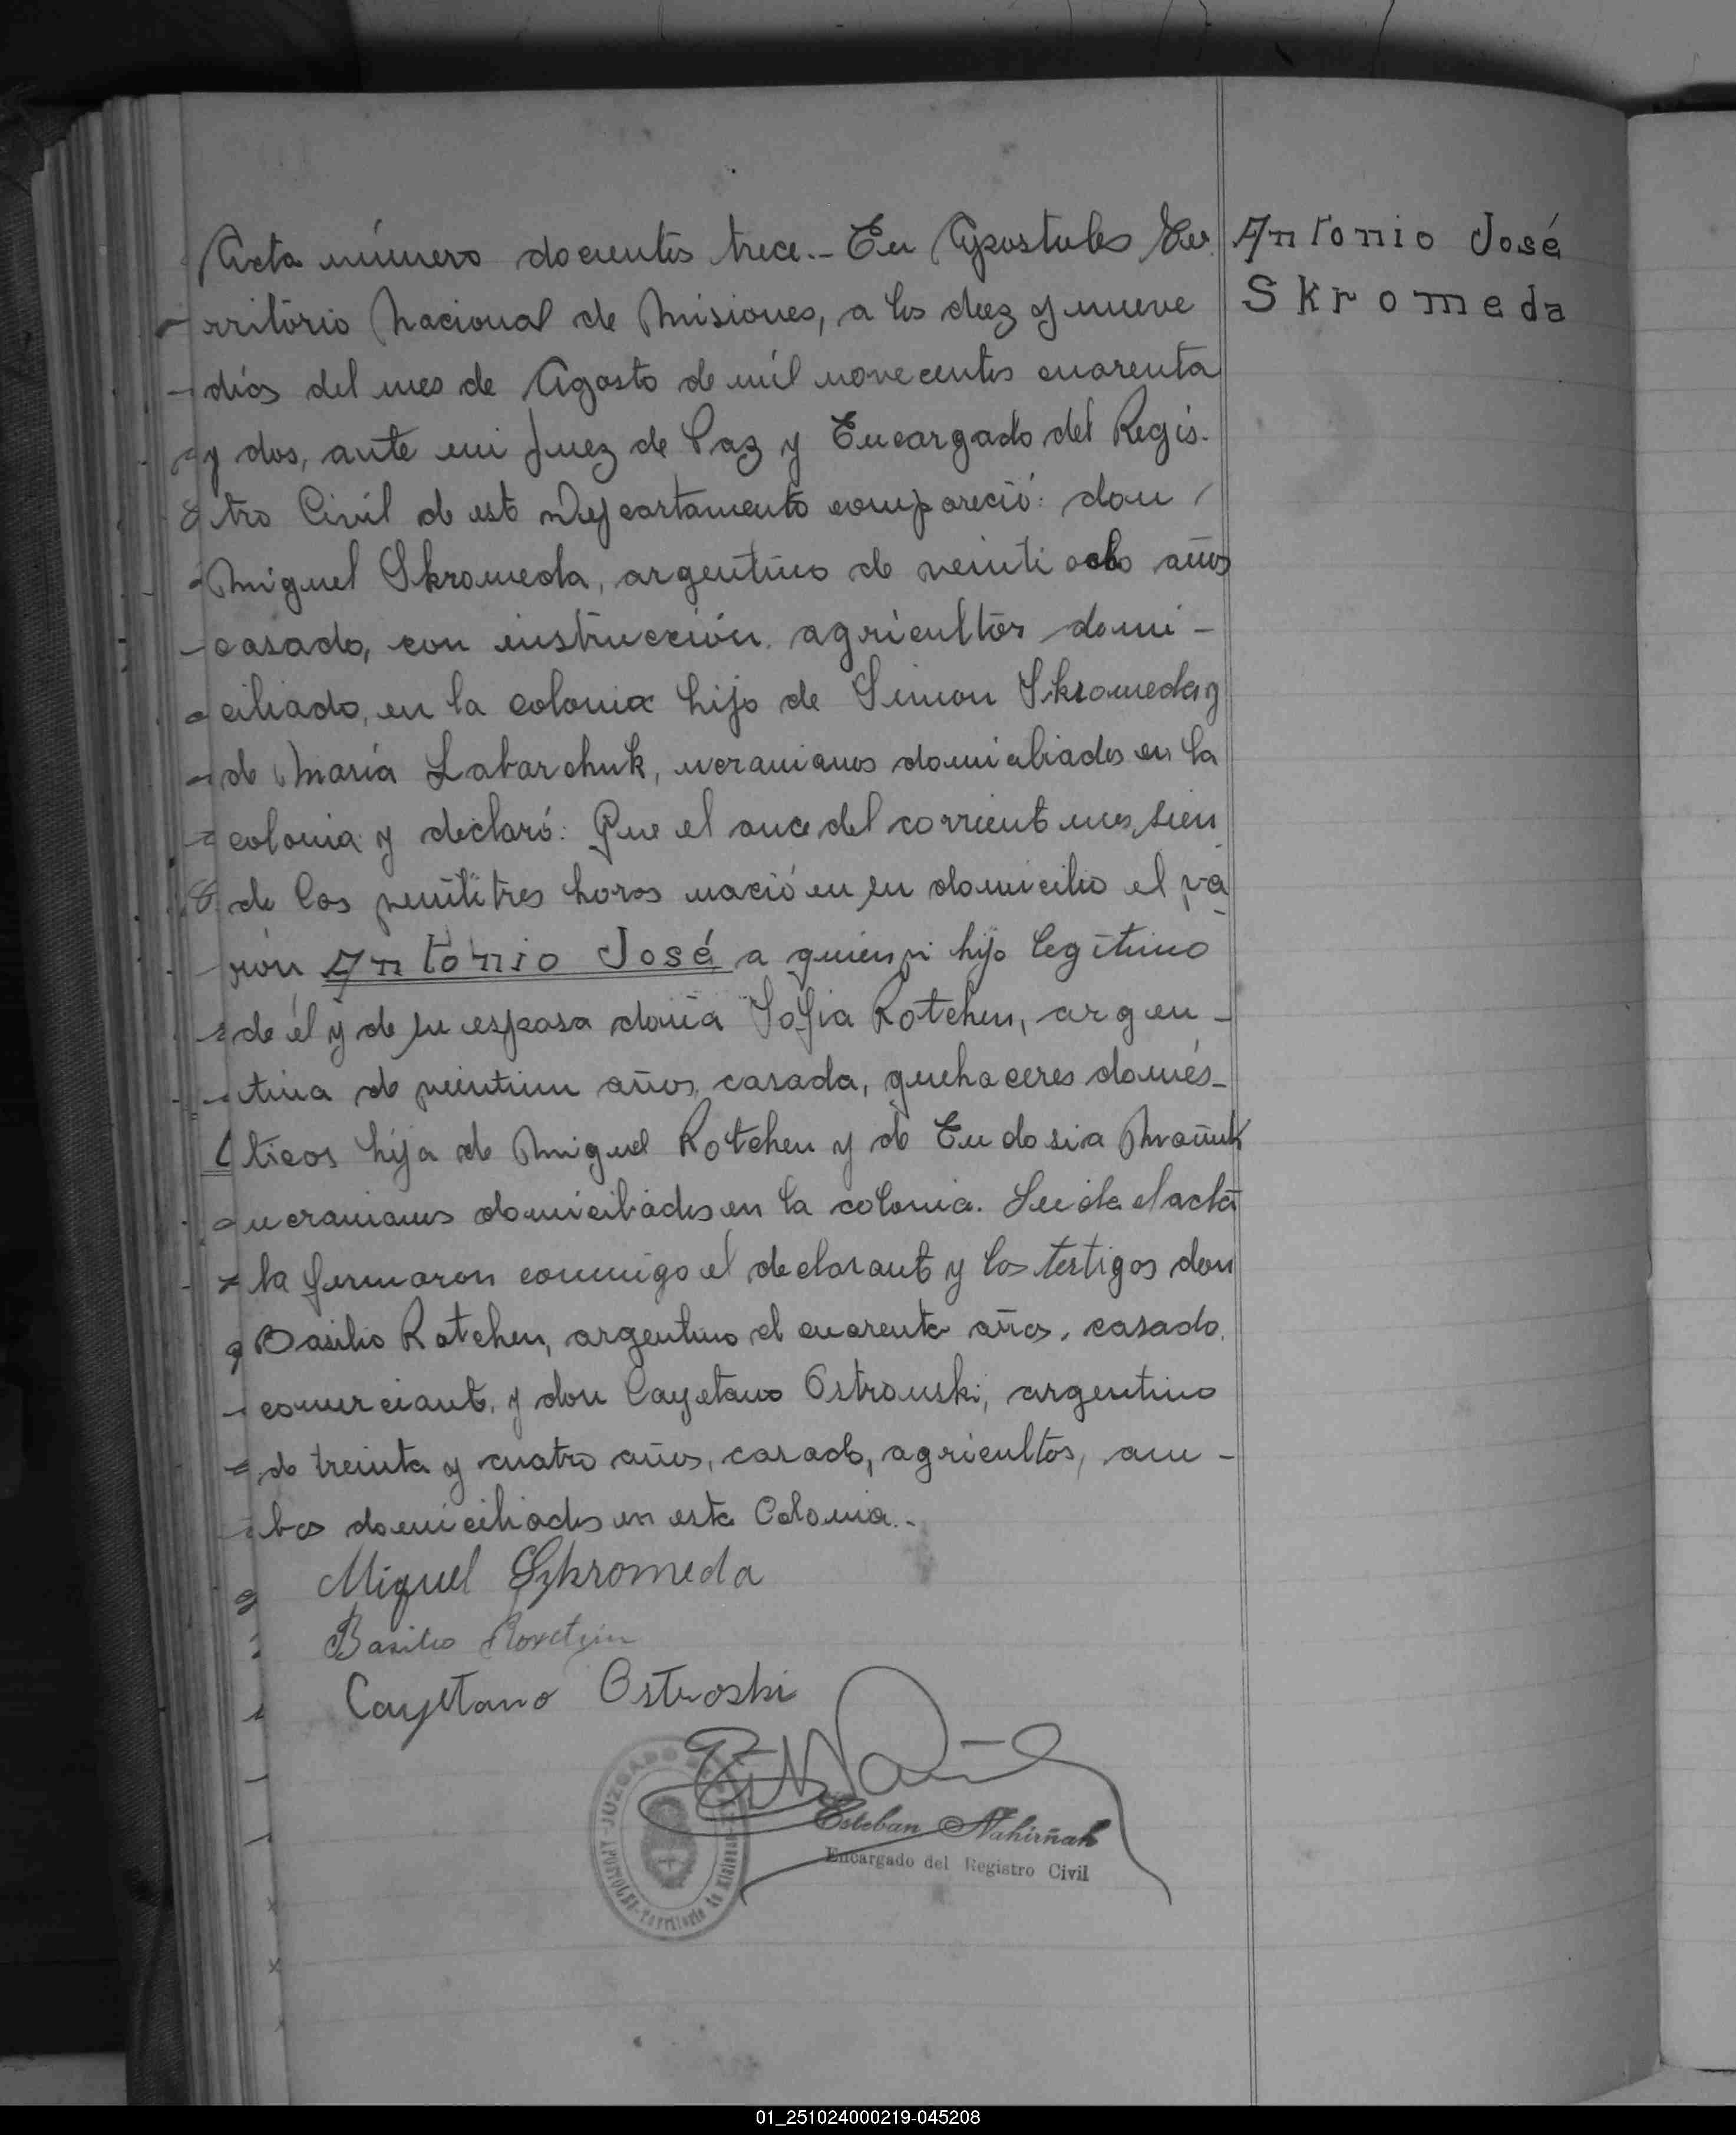 Acta número docientos trece.- En Apostoles Te-
rritório Nacional de Misiones, a los diez y nueve
dias del mes de Agosto de mil novecentos cuarenta
y dos, ante mi Juez de Paz y Encargado del Regis-
tro Civil de este Departamento compareció: don
Miguel Skromeda, argentino de veinti ocho años
casado, con instrucción, agricultor domi-
ciliado, en la colonia hijo de Simon Skromeda y
de María Labarchuk, ucranianos domiciliados en la
colonia y declaró: Que el once del corriente mes, sien
do las veintitres horas nació en su domicilio el va
rón Antonio José a quien hijo legítimo
de él y de su esposa doña Sofia Rotchen, argen-
tina de veintiun años, casada, quehaceres domés-
ticos hija de Miguel Rotchen y de Eudosia
ucranianos domiciliados en la colonia. Leida el acta
la firmaron conmigo el declarante y los testigos don
Basilio Rotchen, argentino de cuarenta años, casado,
comerciante, y don Cayetano Ostrouski, argentino
de treinta y cuatro años, casado, agricultor, am-
bos domiciliados en esta Colonia.-
Miguel Szkromeda
Basilio
Cayetano Ostroski
Antonio José
Skromeda
JUZGADO
APOSTOLES-Territorio de Misiones
Esteban Nahirñak
Encargado del Registro Civil
01_251024000219-045208